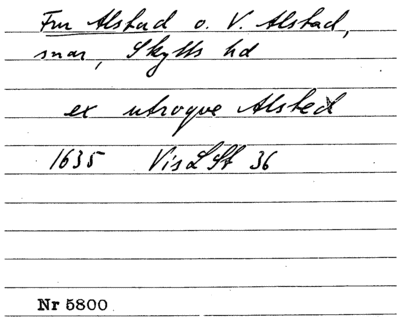 Fru Alstad o. V. Alstad,
snar, Skytts hd
ex utroque Alsted
1635 Vis L St 36
Nr 5800